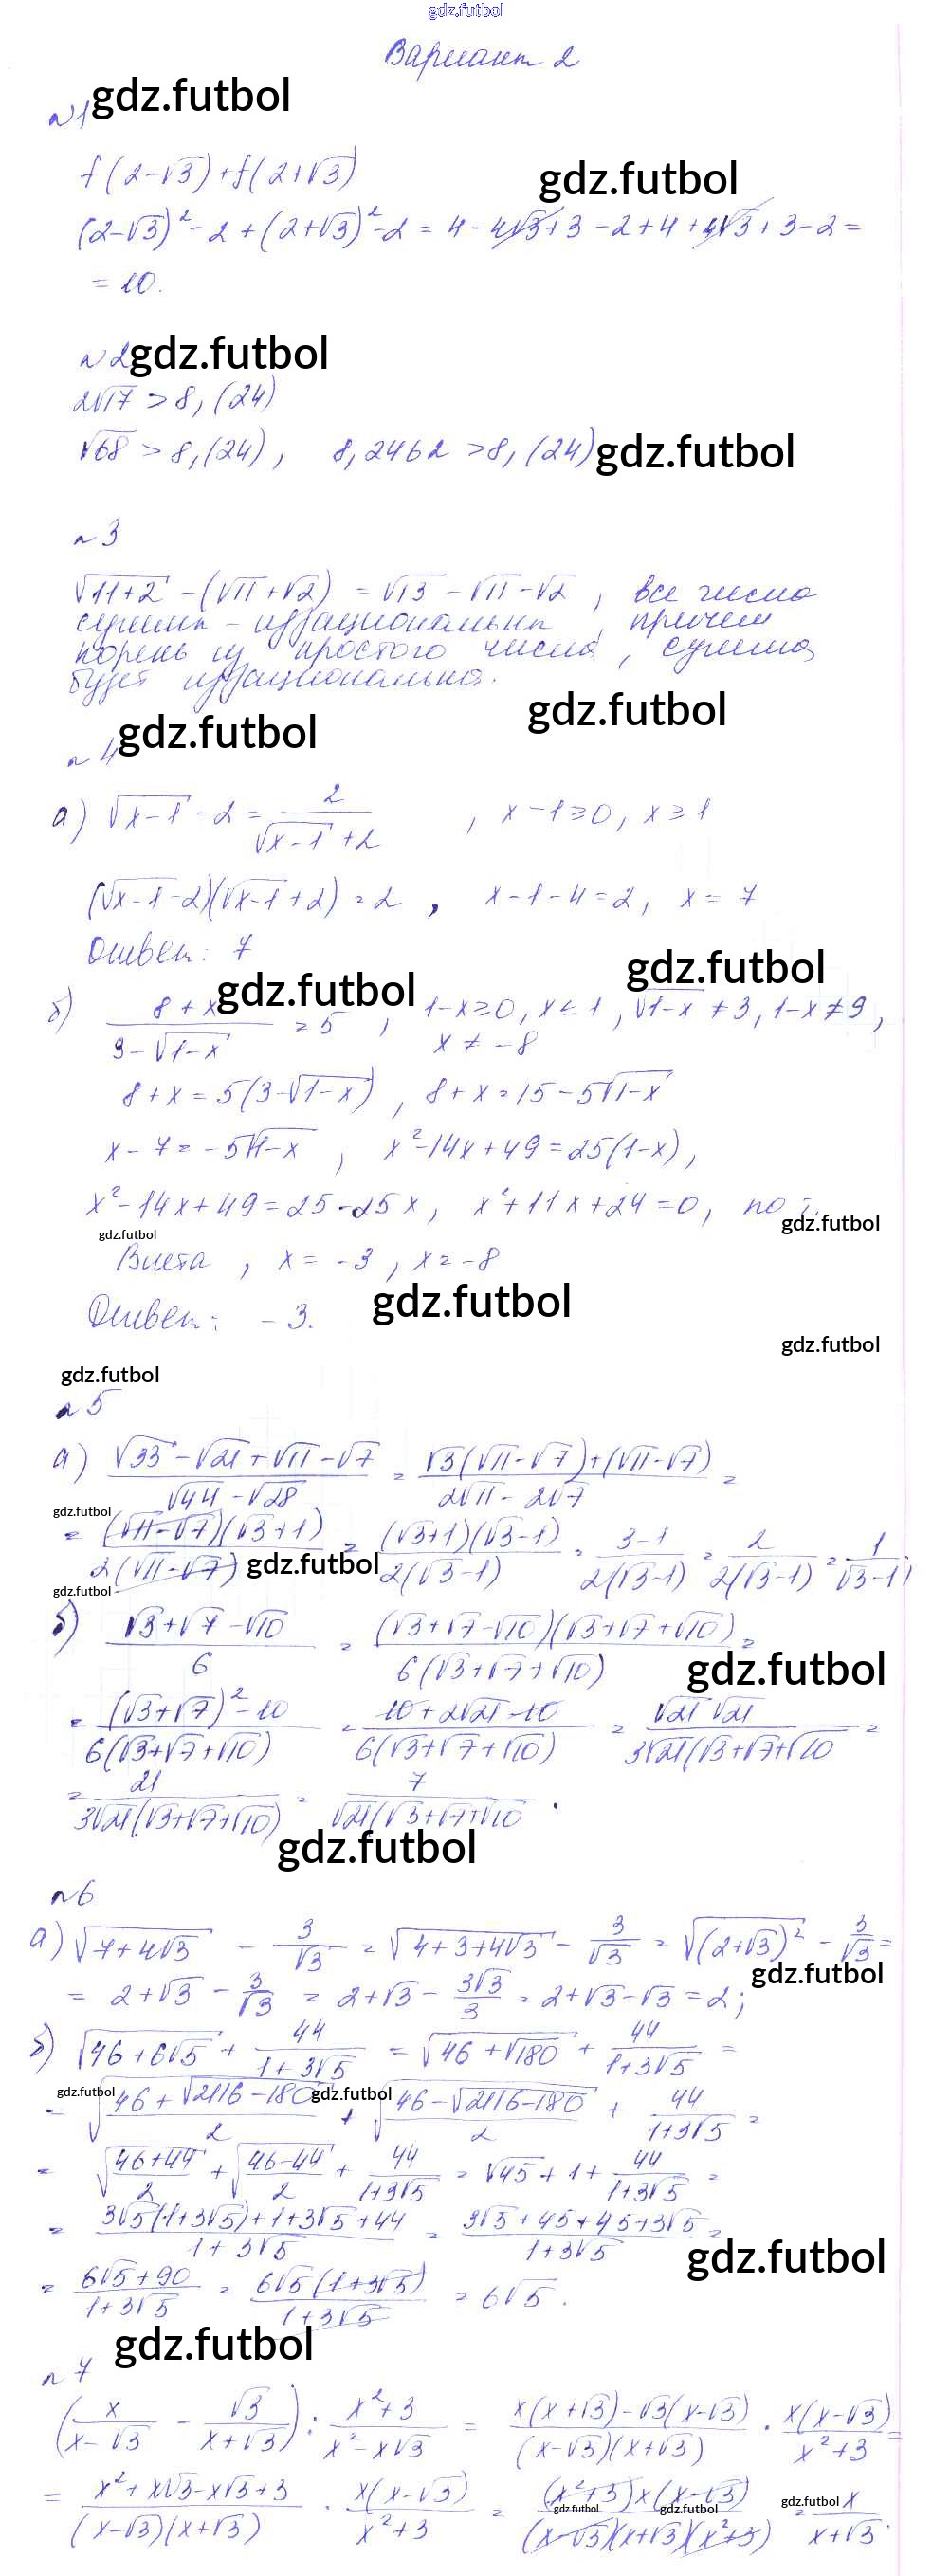 gdz.futbol
Вариант 2
№1 gdz.futbol
f(2-√3)+f(2+√3)
gdz.futbol
(2-√3)²-2+(2+√3)²-2 = 4-4√3+3-2+4+4√3+3-2=
= 10.
№2 gdz.futbol
2√17 > 8,(24)
√68 > 8,(24), 8,2462 > 8,(24) gdz.futbol
№3
√11+2 - (√11+√2) = √13 - √11 - √2, все числа
суммы - иррациональны, причем
корень из простого числа, сумма
будет иррациональна.
gdz.futbol
№4 gdz.futbol
а) √x-1 - 2 = 2/(√x-1 + 2), x-1≥0, x≥1
(√x-1 - 2)(√x-1 + 2) = 2, x-1-4=2, x = 7
Ответ: 7
gdz.futbol
gdz.futbol
б) (8+x)/(3-√1-x) = 5, 1-x≥0, x≤1, √1-x ≠ 3, 1-x≠9,
x ≠ -8
8+x = 5(3-√1-x), 8+x = 15-5√1-x
x-7 = -5√1-x, x²-14x+49 = 25(1-x),
x²-14x+49 = 25-25x, x²+11x+24 = 0, по т.
gdz.futbol
gdz.futbol
Виета, x = -3, x = -8
Ответ: -3.
gdz.futbol
gdz.futbol
gdz.futbol
№5
а) (√33-√21+√11-√7)/(√44-√28) = (√3(√11-√7)+(√11-√7))/(2√11-2√7) =
gdz.futbol
= ((√11-√7)(√3+1))/(2(√11-√7)) = ((√3+1)(√3-1))/(2(√3-1)) = (3-1)/(2(√3-1)) = 2/(2(√3-1)) = 1/(√3-1);
gdz.futbol
gdz.futbol
б) (√3+√7-√10)/6 = ((√3+√7-√10)(√3+√7+√10))/(6(√3+√7+√10)) =
gdz.futbol
= ((√3+√7)²-10)/(6(√3+√7+√10)) = (10+2√21-10)/(6(√3+√7+√10)) = (√21 √21)/(3√21(√3+√7+√10) =
= 21/(3√21(√3+√7+√10)) = 7/(√21(√3+√7+√10).
gdz.futbol
№6
а) √(7+4√3) - 3/√3 = √(4+3+4√3) - 3/√3 = √((2+√3)²) - 3/√3 =
gdz.futbol
= 2+√3 - 3/√3 = 2+√3 - 3√3/3 = 2+√3-√3 = 2;
б) √(46+6√5) + 44/(1+3√5) = √(46+√180) + 44/(1+3√5) =
gdz.futbol
gdz.futbol
= √((46+√(2116-180))/2) + √((46-√(2116-180))/2) + 44/(1+3√5) =
= √((46+44)/2) + √((46-44)/2) + 44/(1+3√5) = √45 + 1 + 44/(1+3√5) =
= (3√5(1+3√5)+1+3√5+44)/(1+3√5) = (3√5+45+45+3√5)/(1+3√5) =
gdz.futbol
= (6√5+90)/(1+3√5) = (6√5(1+3√5))/(1+3√5) = 6√5.
gdz.futbol
№7
(x/(x-√3) - √3/(x+√3)) : (x²+3)/(x²-x√3) = (x(x+√3)-√3(x-√3))/((x-√3)(x+√3)) · (x(x-√3))/(x²+3) =
= (x²+x√3-x√3+3)/((x-√3)(x+√3)) · (x(x-√3))/(x²+3) = ((x²+3)x(x-√3))/((x-√3)(x+√3)(x²+3)) = x/(x+√3).
gdz.futbol
gdz.futbol
gdz.futbol